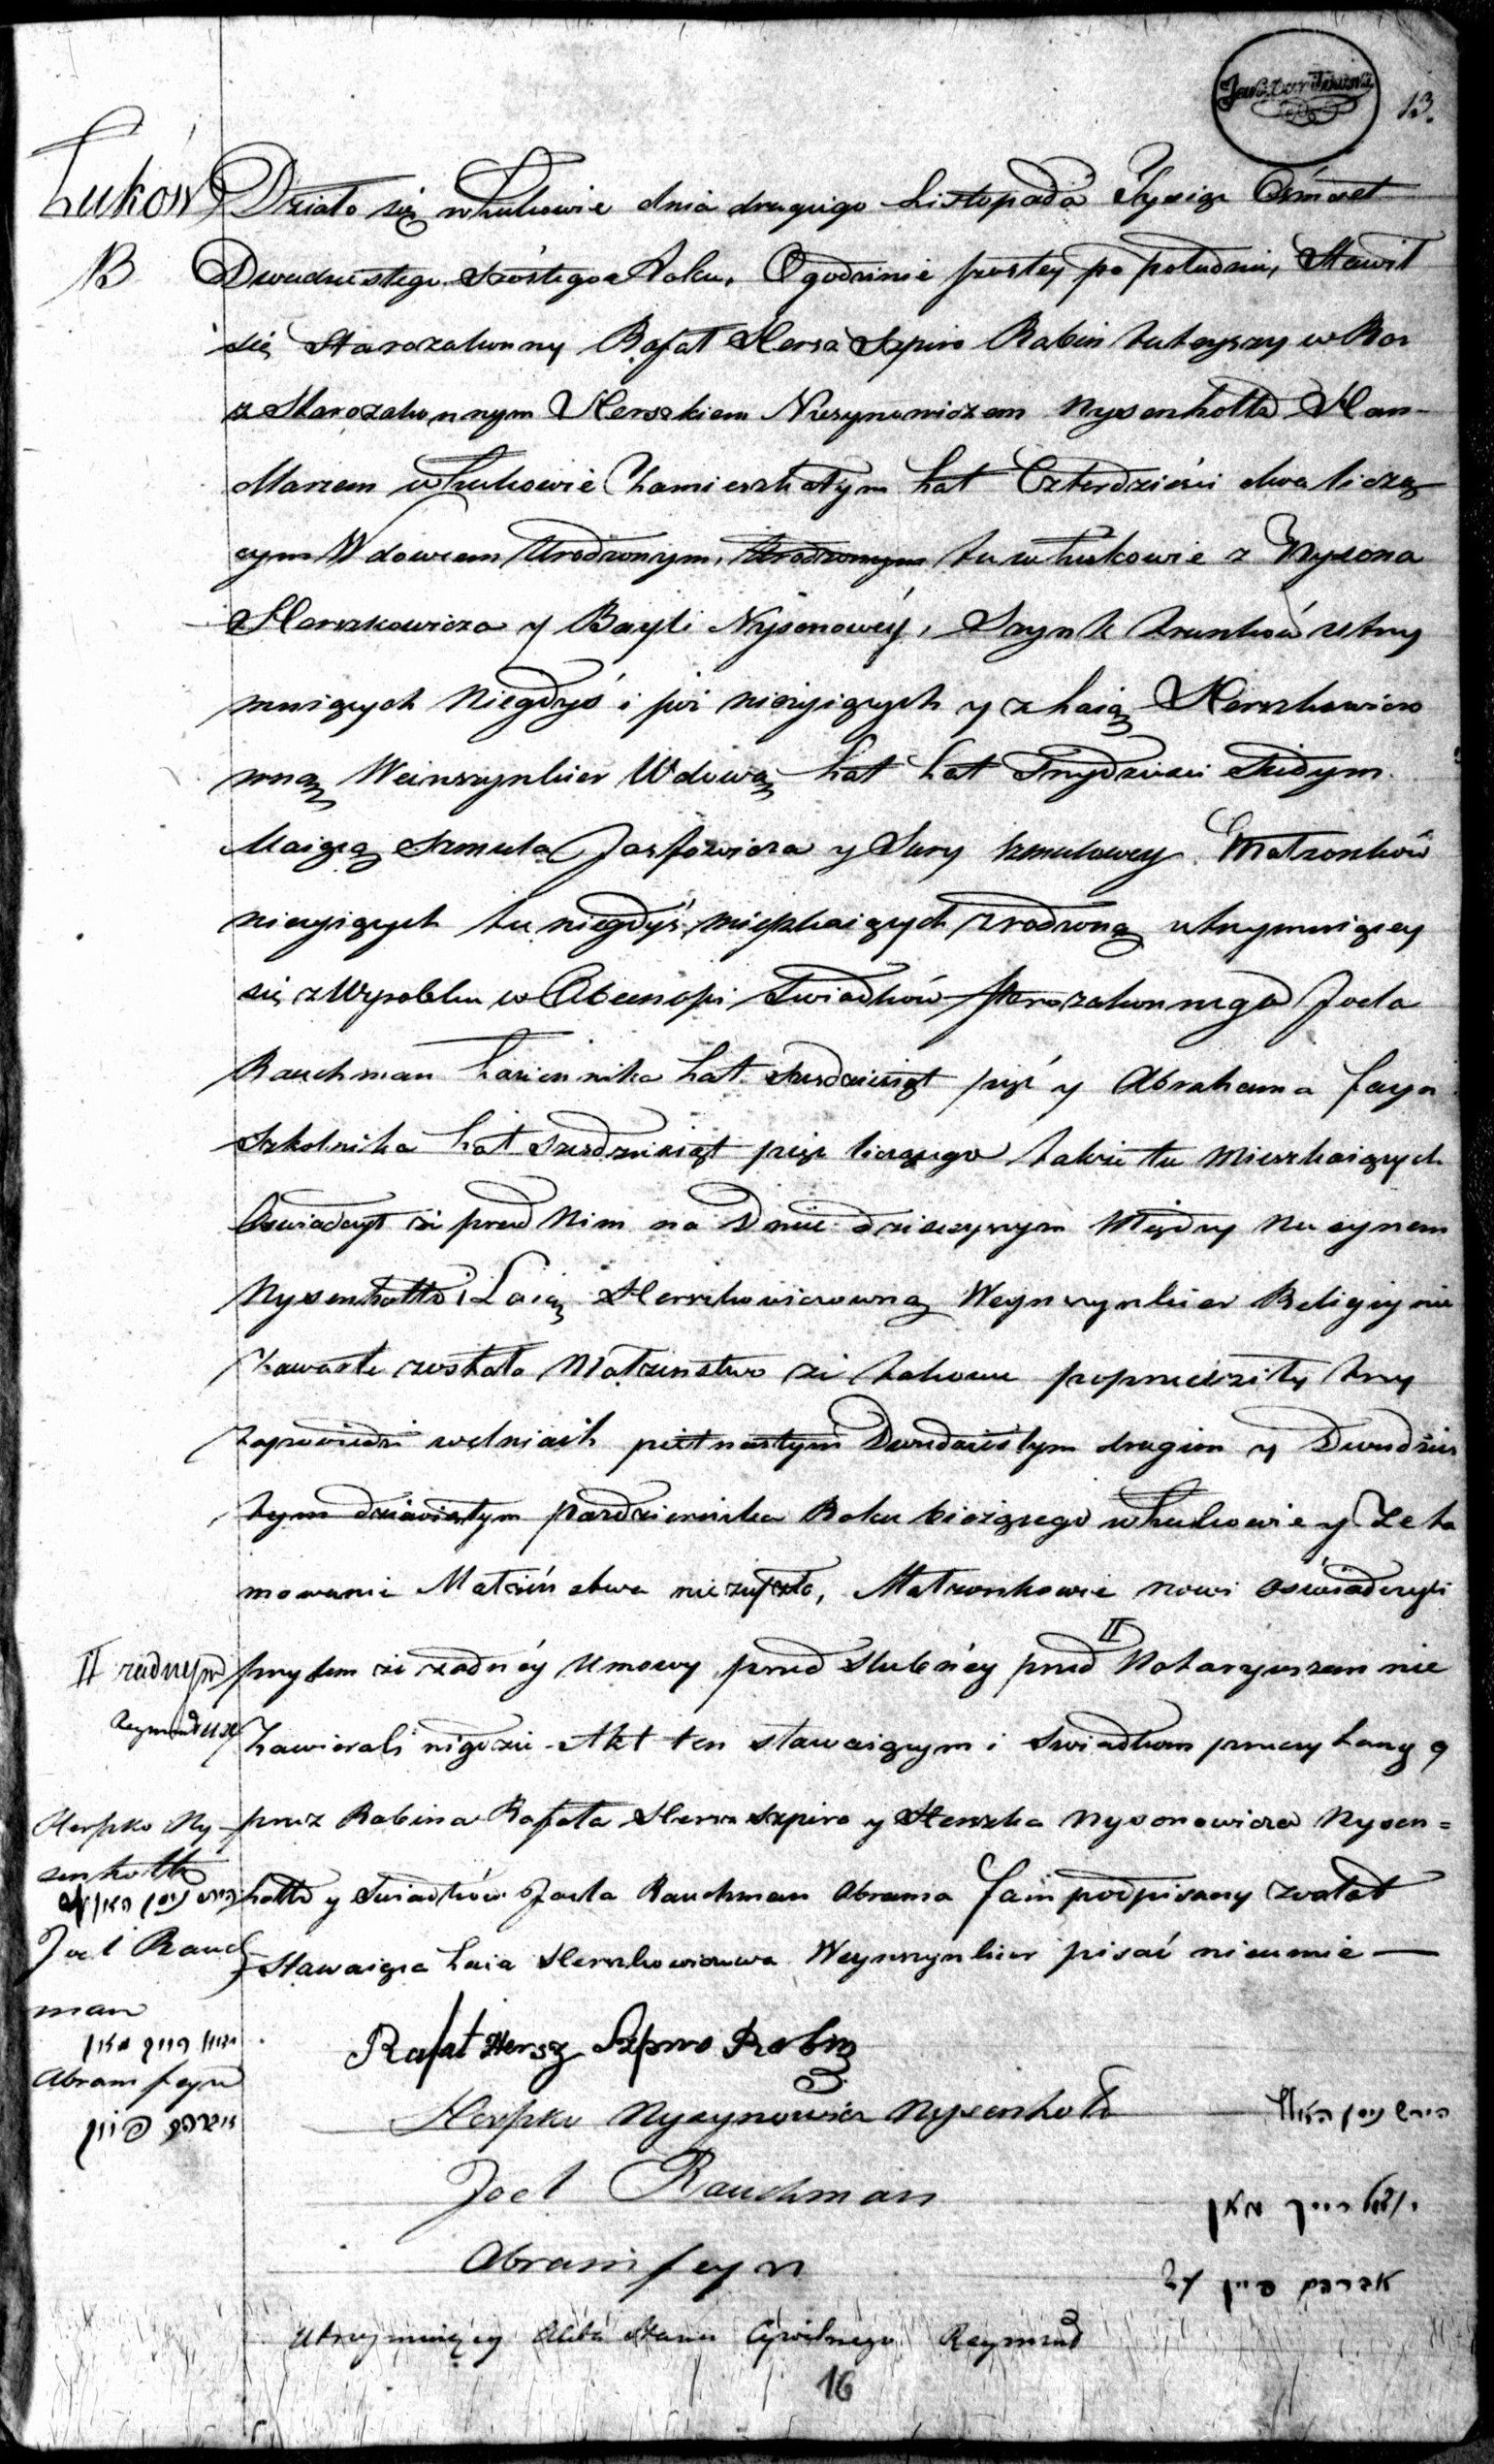 13.
Łuków
13
Działo się w Łukowie dnia drugiego Listopada Tysiąc Ośmset
Dwudziestego Szóstego Roku, O godzinie szostey po południu, Stawił
się Starozakonny Rafał Hersz Szpiro Rabin tuteyszy w Raz
z Starozakonnym Herszkiem Nusynowiczem Nysenholtz Han-
dlarzem w Łukowie Zamieszkałym Lat Czterdzieści dwa liczą
cym Wdowcem Urodzonym, Urodzonym tu w Łukowie z Nysona
Herszkowicza y Bayli Nysonowéy, Szynk trunków utrzy
muiących Niegdyś i już nieżyiących y z Laią Herszkowiczo
wną Weinszynkier Wdową Lat Lat Trzydzieści Siedym
Maiącą Szmula Josfowicza y Sury Szmulowey Małżonków
nieżyiących tu niegdyś mieszkaiących zrodzoną utrzymuiącey
się z Wyrobku w Obecności Swiadków starozakonnego Joela
Rauchman Łaziennika Lat Szesdziesiąt pięć y Abrahama Fayn
Szkolnika Lat Szesdziesiąt pięć liczącego także tu Mieszkaiących
Oswiadczył że przed Nim na Dniu dzisieyszym Między Nusynem
Nysenholtz i Laią Herszkowiczowną Weynszynkier Religiynie
Zawarte zostało Małżenstwo że takowe poprzedziły trzy
zapowiedzi w dniach piętnastym Dwudziestym drugim y Dwudzies
tym dziewiątym pazdziernika Roku bieżącego w Łukowie y Zeta
mowanie Małżeństwa nie zaszło, Małżonkowie nowi oświadczyli
II żadnym
przytem że żadnéy Umowy przed Slubnéy przed II Notaryuszem nie
Reymond USC
Zawierali nigdzie Akt ten stawaiącym i Swiadkom przeczytany
Herszko Ny-
przez Rabina Rafała Hersz Szpiro y Herszka Nysonowicza Nysen=
senholtz
holtz y Swiadków Joela Rauchman Abrama Fain podpisany został
Joel Rauch
Stawaiąca Laia Herszkowiczowa Weynszynkier pisać nieumie —
man
Rafał Hersz Szpiro Rabin
Abram Feyn
Herszko Nysynowicz Nysenholtz
הירש ניסן האלץ
Joel Rauchman
יואל רייך מאן
Abram Feyn
אברהם פיין
Utrzymuiący Akta Stanu Cywilnego Reymond
16